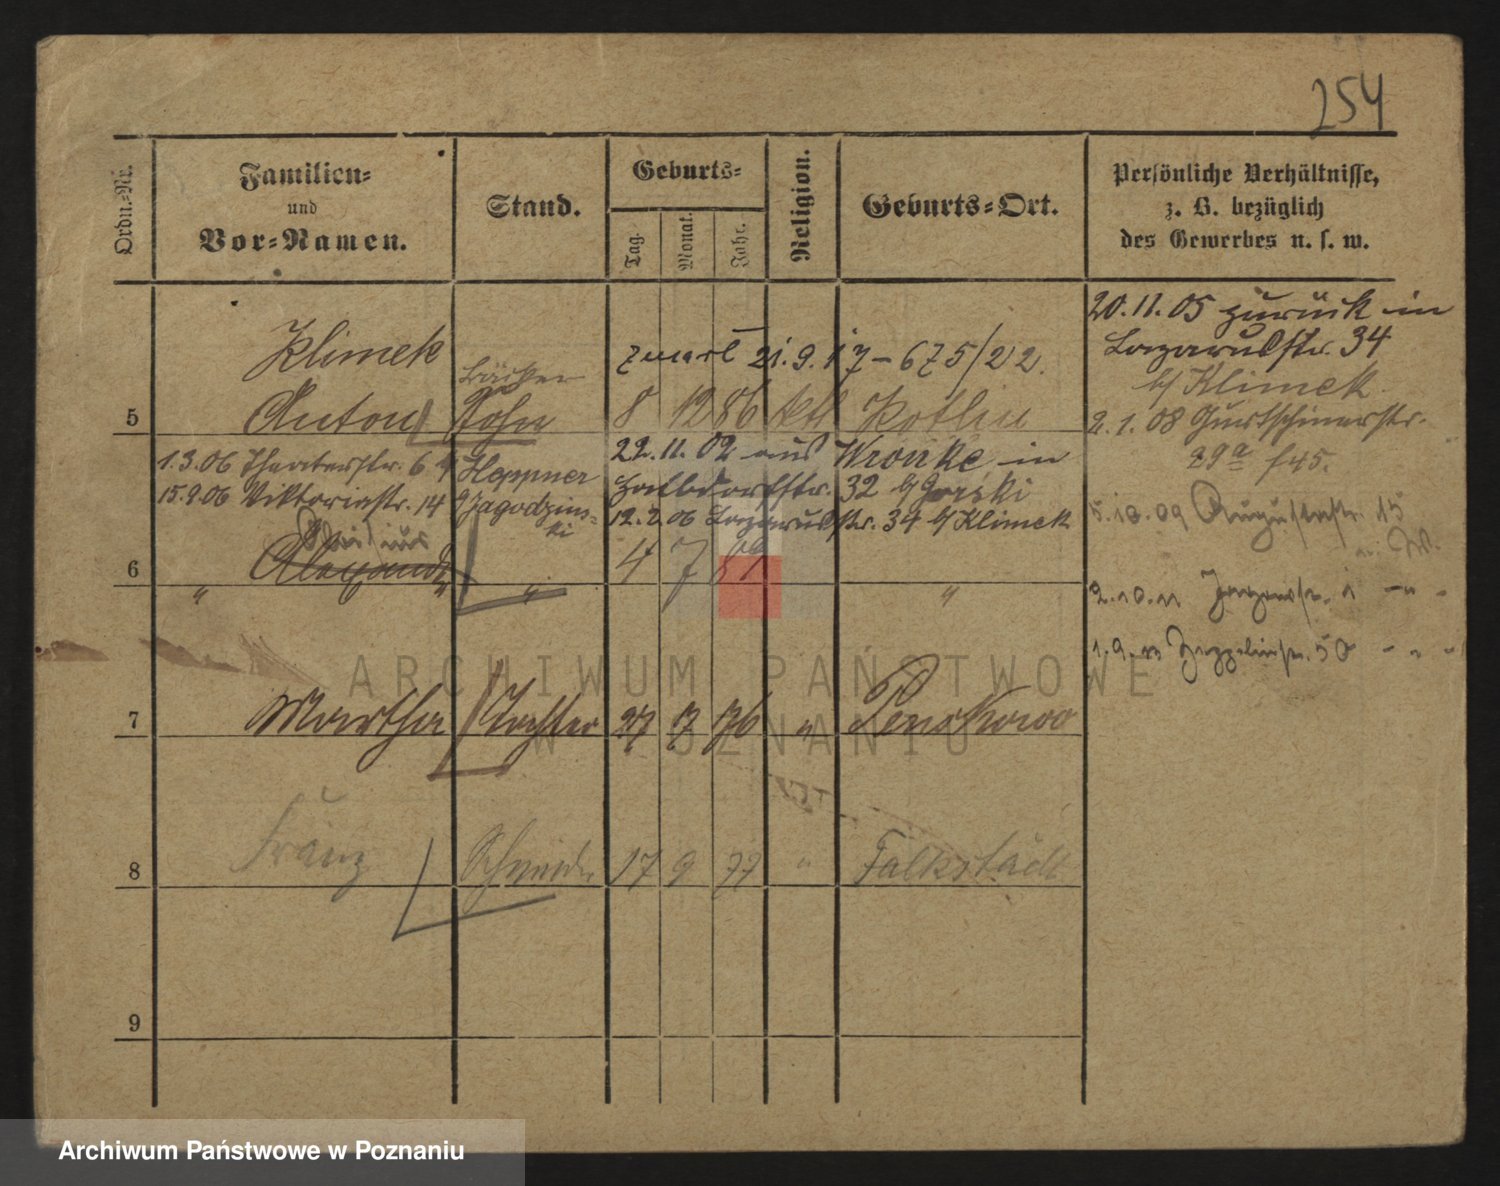 254
Ordn.-Nr.
Familien-
und
Vor-Namen.
Stand.
Geburts-
Tag.
Monat.
Jahr.
Religion.
Geburts-Ort.
Persönliche Verhältnisse,
z. B. bezüglich
des Gewerbes u. s. w.
20.11.05 zurück in
Lazarusstr. 34
b/ Klimek
Klimek
21.9.17-675/22.
Bäcker
5 Anton Sohn 8 12 86 kth Kotlin
2.1.08 Gurtschinerstr.
29a f45.
1.3.06 Theaterstr. 6 b/ Heppner
22.11.02 aus Wronke in
15.9.06 Viktoriastr. 14 b/ Jagodzins-
ki
32 b/ Gorski
12.2.06 Lazarusstr. 34 b/ Klimek
5.10.09 Augustastr. 15
6 4 7
" " " "
2.10.11
1.9. Zeppelinstr. 50 - " -
7 Martha Tochter 27 7 76 "
8 Franz Schneider 17 9 77 " Falkstädt
9
ARCHIWUM PAŃSTWOWE
W POZNANIU
Archiwum Państwowe w Poznaniu